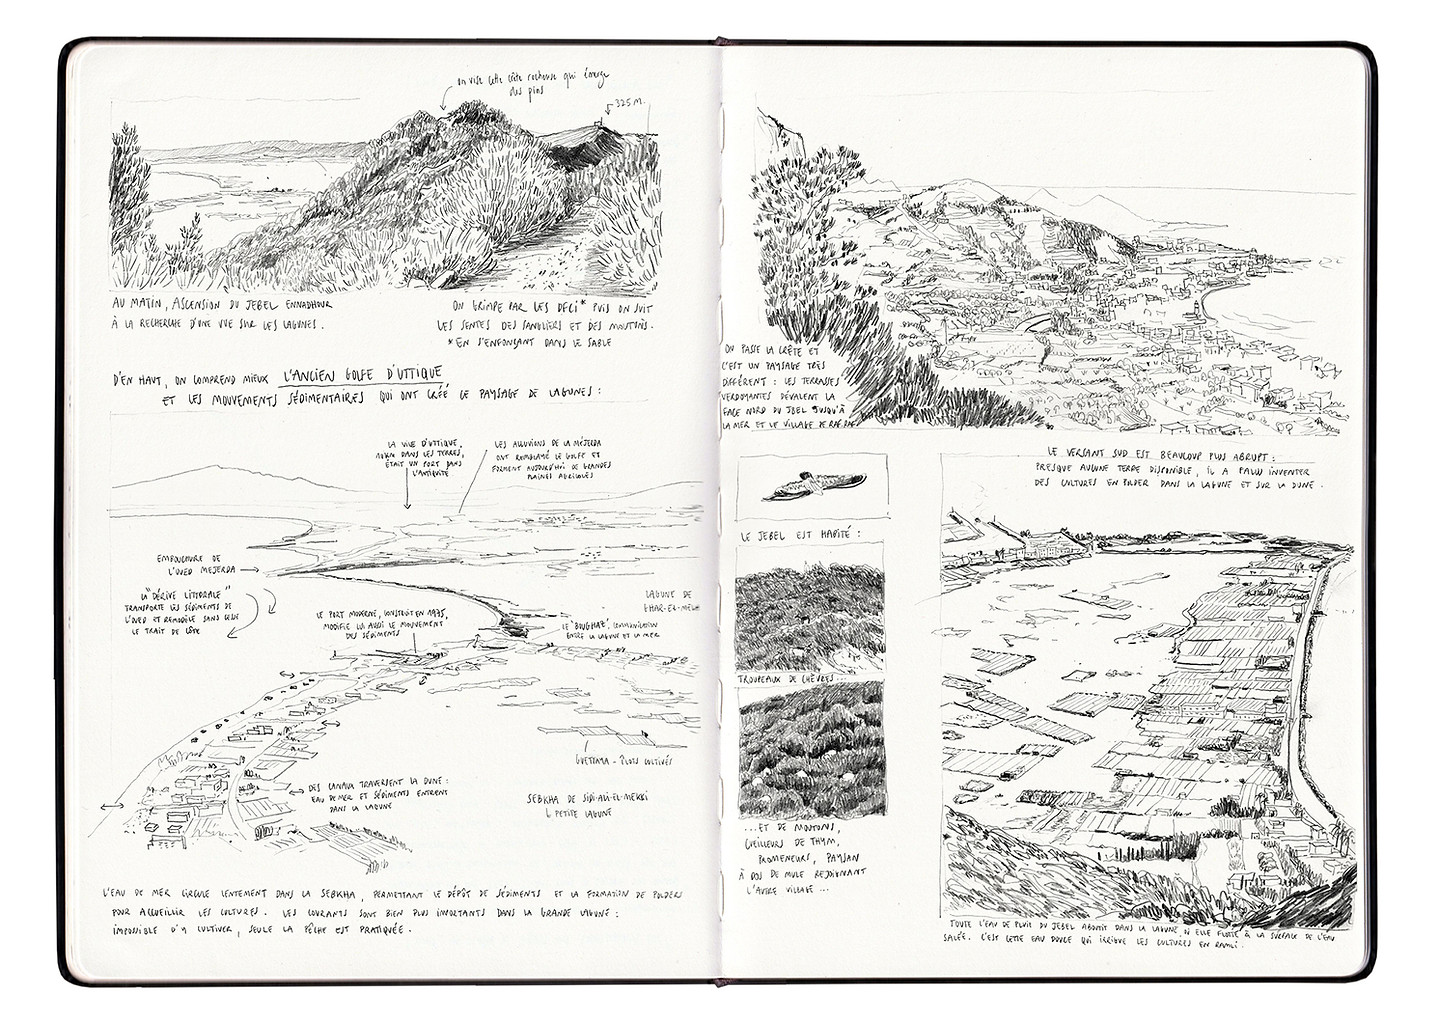 on vise cette crête rocheuse qui émerge
des pins
325 M.
AU MATIN, ASCENSION DU JEBEL ENNADHOUR
À LA RECHERCHE D'UNE VUE SUR LES LAGUNES.
ON GRIMPE PAR LES DECI* PUIS ON SUIT
LES SENTES DES SANGLIERS ET DES MOUTONS.
*EN S'ENFONÇANT DANS LE SABLE
D'EN HAUT, ON COMPREND MIEUX L'ANCIEN GOLFE D'UTTIQUE
ET LES MOUVEMENTS SÉDIMENTAIRES QUI ONT CRÉÉ CE PAYSAGE DE LAGUNES :
LA VILLE D'UTTIQUE,
10KM DANS LES TERRES,
ÉTAIT UN PORT DANS
L'ANTIQUITÉ
LES ALLUVIONS DE LA MÉJERDA
ONT REMBLAYÉ LE GOLFE ET
FORMENT AUJOURD'HUI DE GRANDES
PLAINES AGRICOLES
EMBOUCHURE DE
L'OUED MEJERDA
LA "DÉRIVE LITTORALE"
TRANSPORTE LES SÉDIMENTS DE
L'OUED ET REMODÈLE SANS CESSE
LE TRAIT DE CÔTE
LE PORT MODERNE, CONSTRUIT EN 1975,
MODIFIE LUI AUSSI LE MOUVEMENT
DES SÉDIMENTS
LAGUNE DE
GHAR-EL-MELH
LE "BOUGHAZ", COMMUNICATION
ENTRE LA LAGUNE ET LA MER
GUETTAYA - ÎLOTS CULTIVÉS
DES CANAUX TRAVERSENT LA DUNE :
EAU DE MER ET SÉDIMENTS ENTRENT
DANS LA LAGUNE
SEBKHA DE SIDI-ALI-EL-MEKKI
PETITE LAGUNE
L'EAU DE MER CIRCULE LENTEMENT DANS LA SEBKHA, PERMETTANT LE DÉPÔT DE SÉDIMENTS ET LA FORMATION DE POLDERS
POUR ACCUEILLIR LES CULTURES. LES COURANTS SONT BIEN PLUS IMPORTANTS DANS LA GRANDE LAGUNE :
IMPOSSIBLE D'Y CULTIVER, SEULE LA PÊCHE EST PRATIQUÉE.
ON PASSE LA CRÊTE ET
C'EST UN PAYSAGE TRÈS
DIFFÉRENT : LES TERRASSES
VERDOYANTES DÉVALENT LA
FACE NORD DU JBEL JUSQU'À
LA MER ET LE VILLAGE DE RAF RAF
LE JEBEL EST HABITÉ :
TROUPEAUX DE CHÈVRES...
...ET DE MOUTONS,
CUEILLEURS DE THYM,
PROMENEURS, PAYSAN
À DOS DE MULE REJOIGNANT
L'AUTRE VILLAGE ...
LE VERSANT SUD EST BEAUCOUP PLUS ABRUPT :
PRESQUE AUCUNE TERRE DISPONIBLE, IL A FALLU INVENTER
DES CULTURES EN POLDER DANS LA LAGUNE ET SUR LA DUNE.
TOUTE L'EAU DE PLUIE DU JEBEL ABOUTIT DANS LA LAGUNE, OÙ ELLE FLOTTE À LA SURFACE DE L'EAU
SALÉE. C'EST CETTE EAU DOUCE QUI IRRIGUE LES CULTURES EN RAMLI.